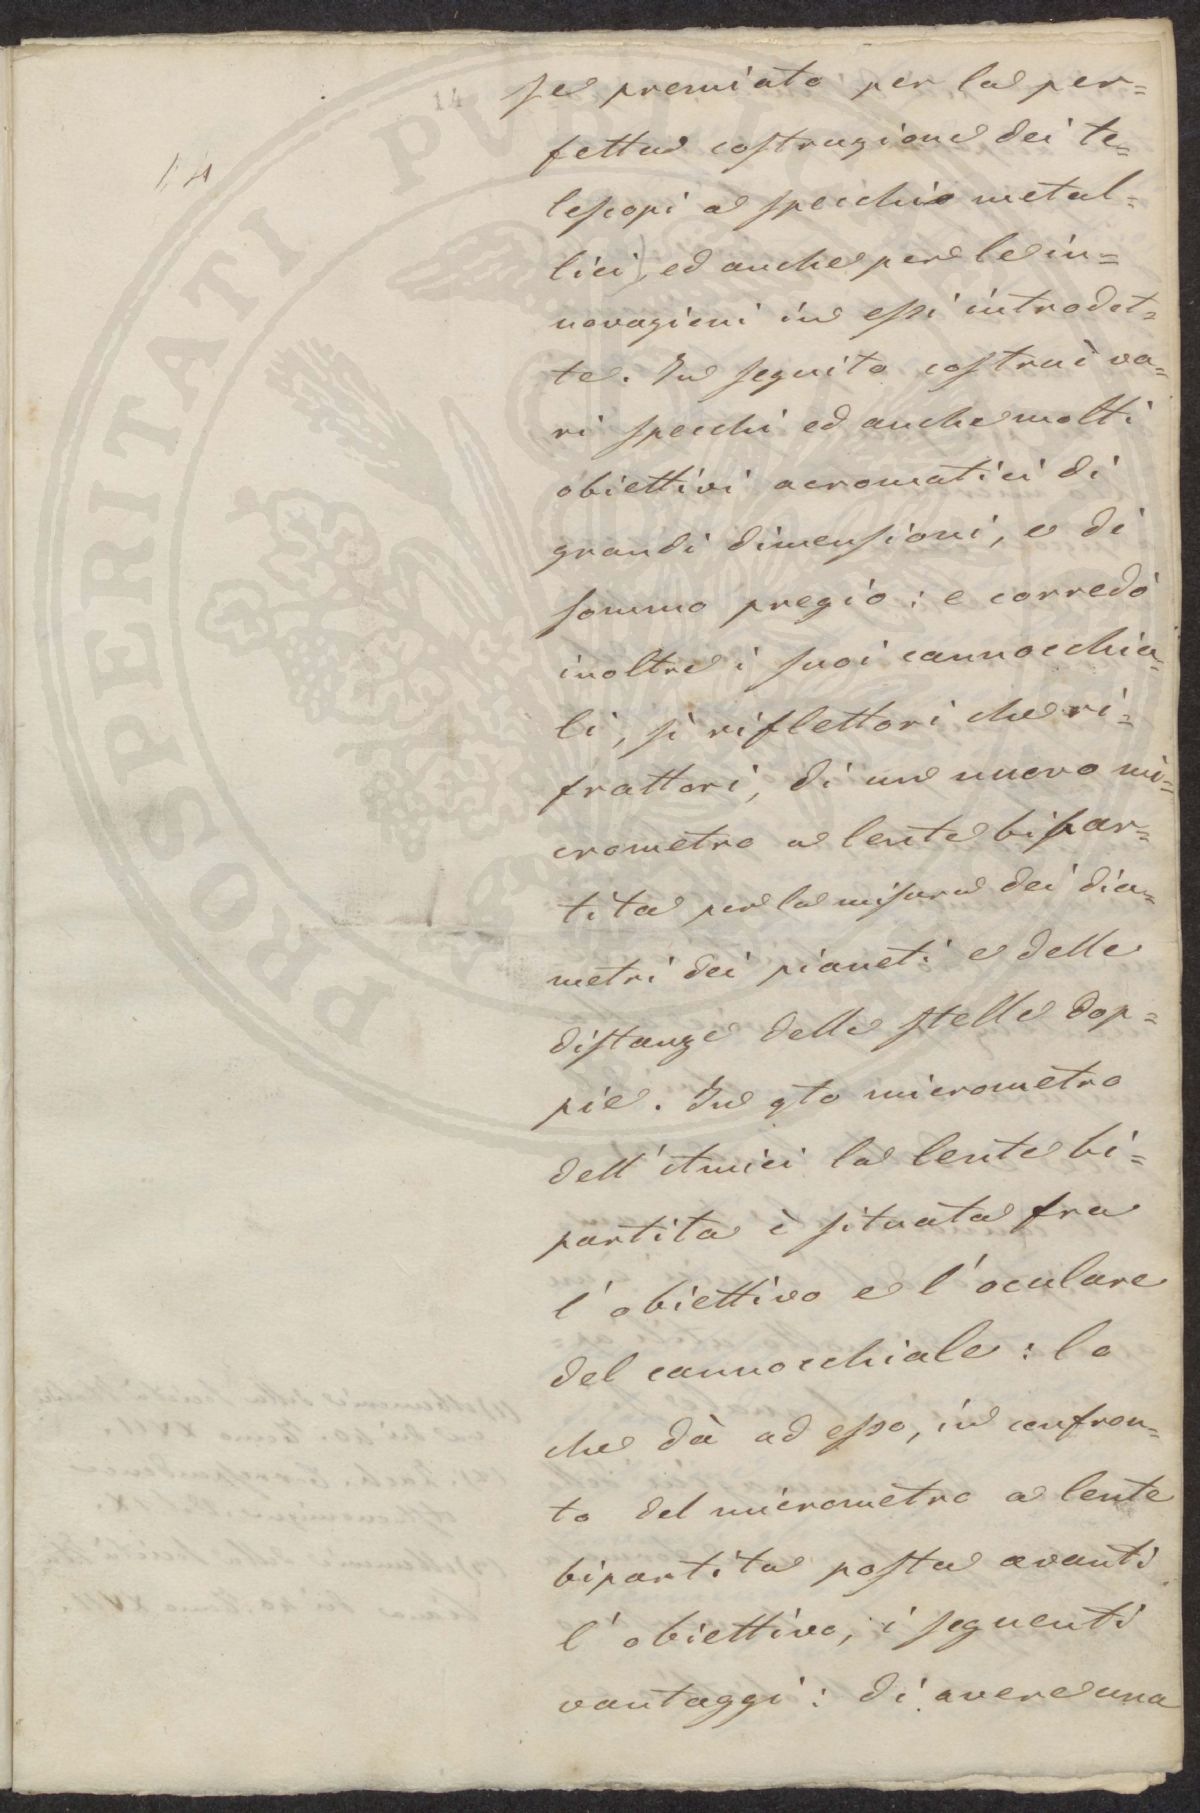 14
14
se premiato per la per=
fetta costruzione dei te=
lescopi a specchio metal=
lici, ed anche per le in=
novazioni in essi introdot=
te. In seguito costruì va=
ri specchi ed anche molti
obiettivi acromatici di
grandi dimensioni, e di
sommo pregio: e corredò
inoltre i suoi cannocchia=
li, sì riflettori che ri=
frattori, di un nuovo mi=
crometro a lente bipar=
tita per la misura dei dia=
metri dei pianeti e delle
distanze delle stelle dop=
pie. In qto micrometro
dell'Amici la lente bi=
partita è situata fra
l'obiettivo e l'oculare
del cannocchiale: lo
che dà ad esso, in confron=
to del micrometro a lente
bipartita posta avanti
l'obiettivo, i seguenti
vantaggi: di avere una
PROSPERITATI PUBLICAE